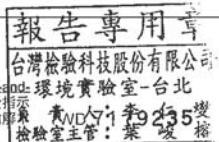 報告專用章
台灣檢驗科技股份有限公司
環境實驗室-台北
負責人：李仁燮
WD7179235
檢驗室主管：葉峻榕